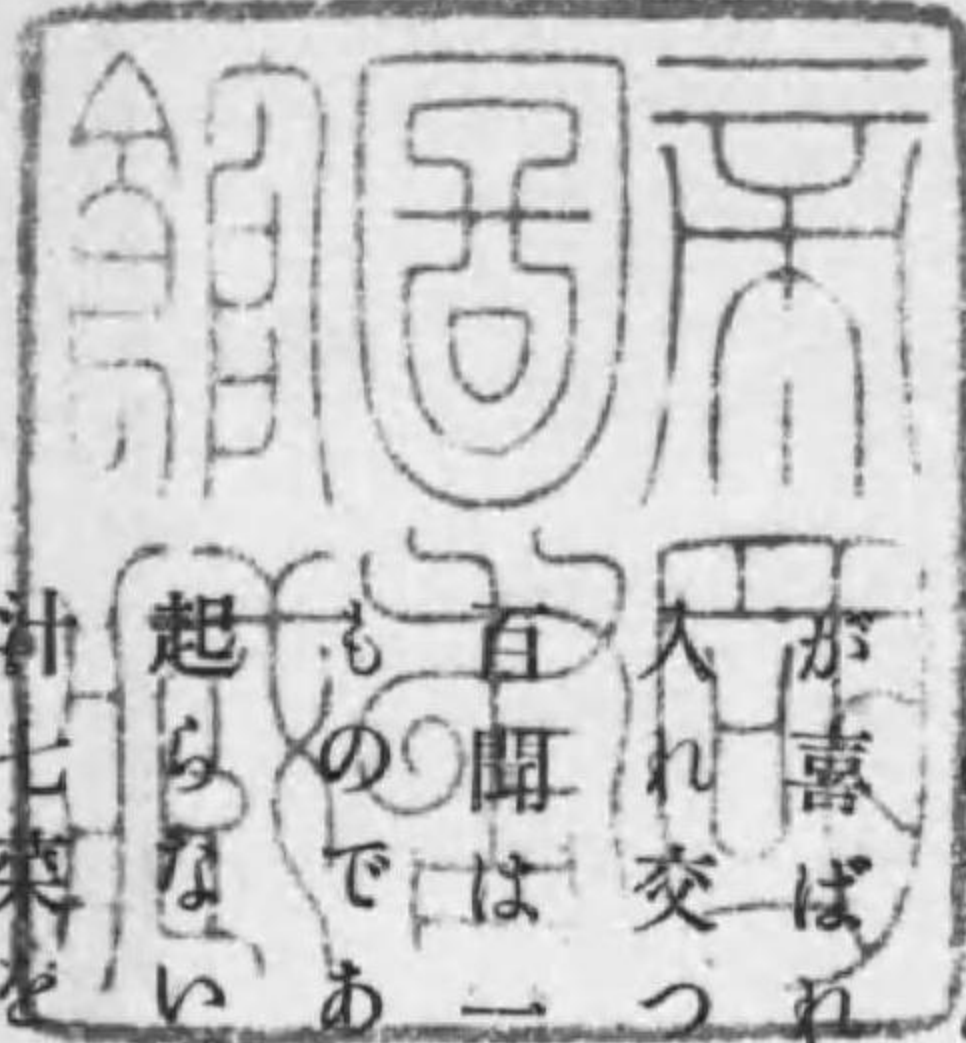 帝國
圖書
館藏
が喜ばれ
入れ交つ
百聞は一
ものであ
起らない
汁七菜を